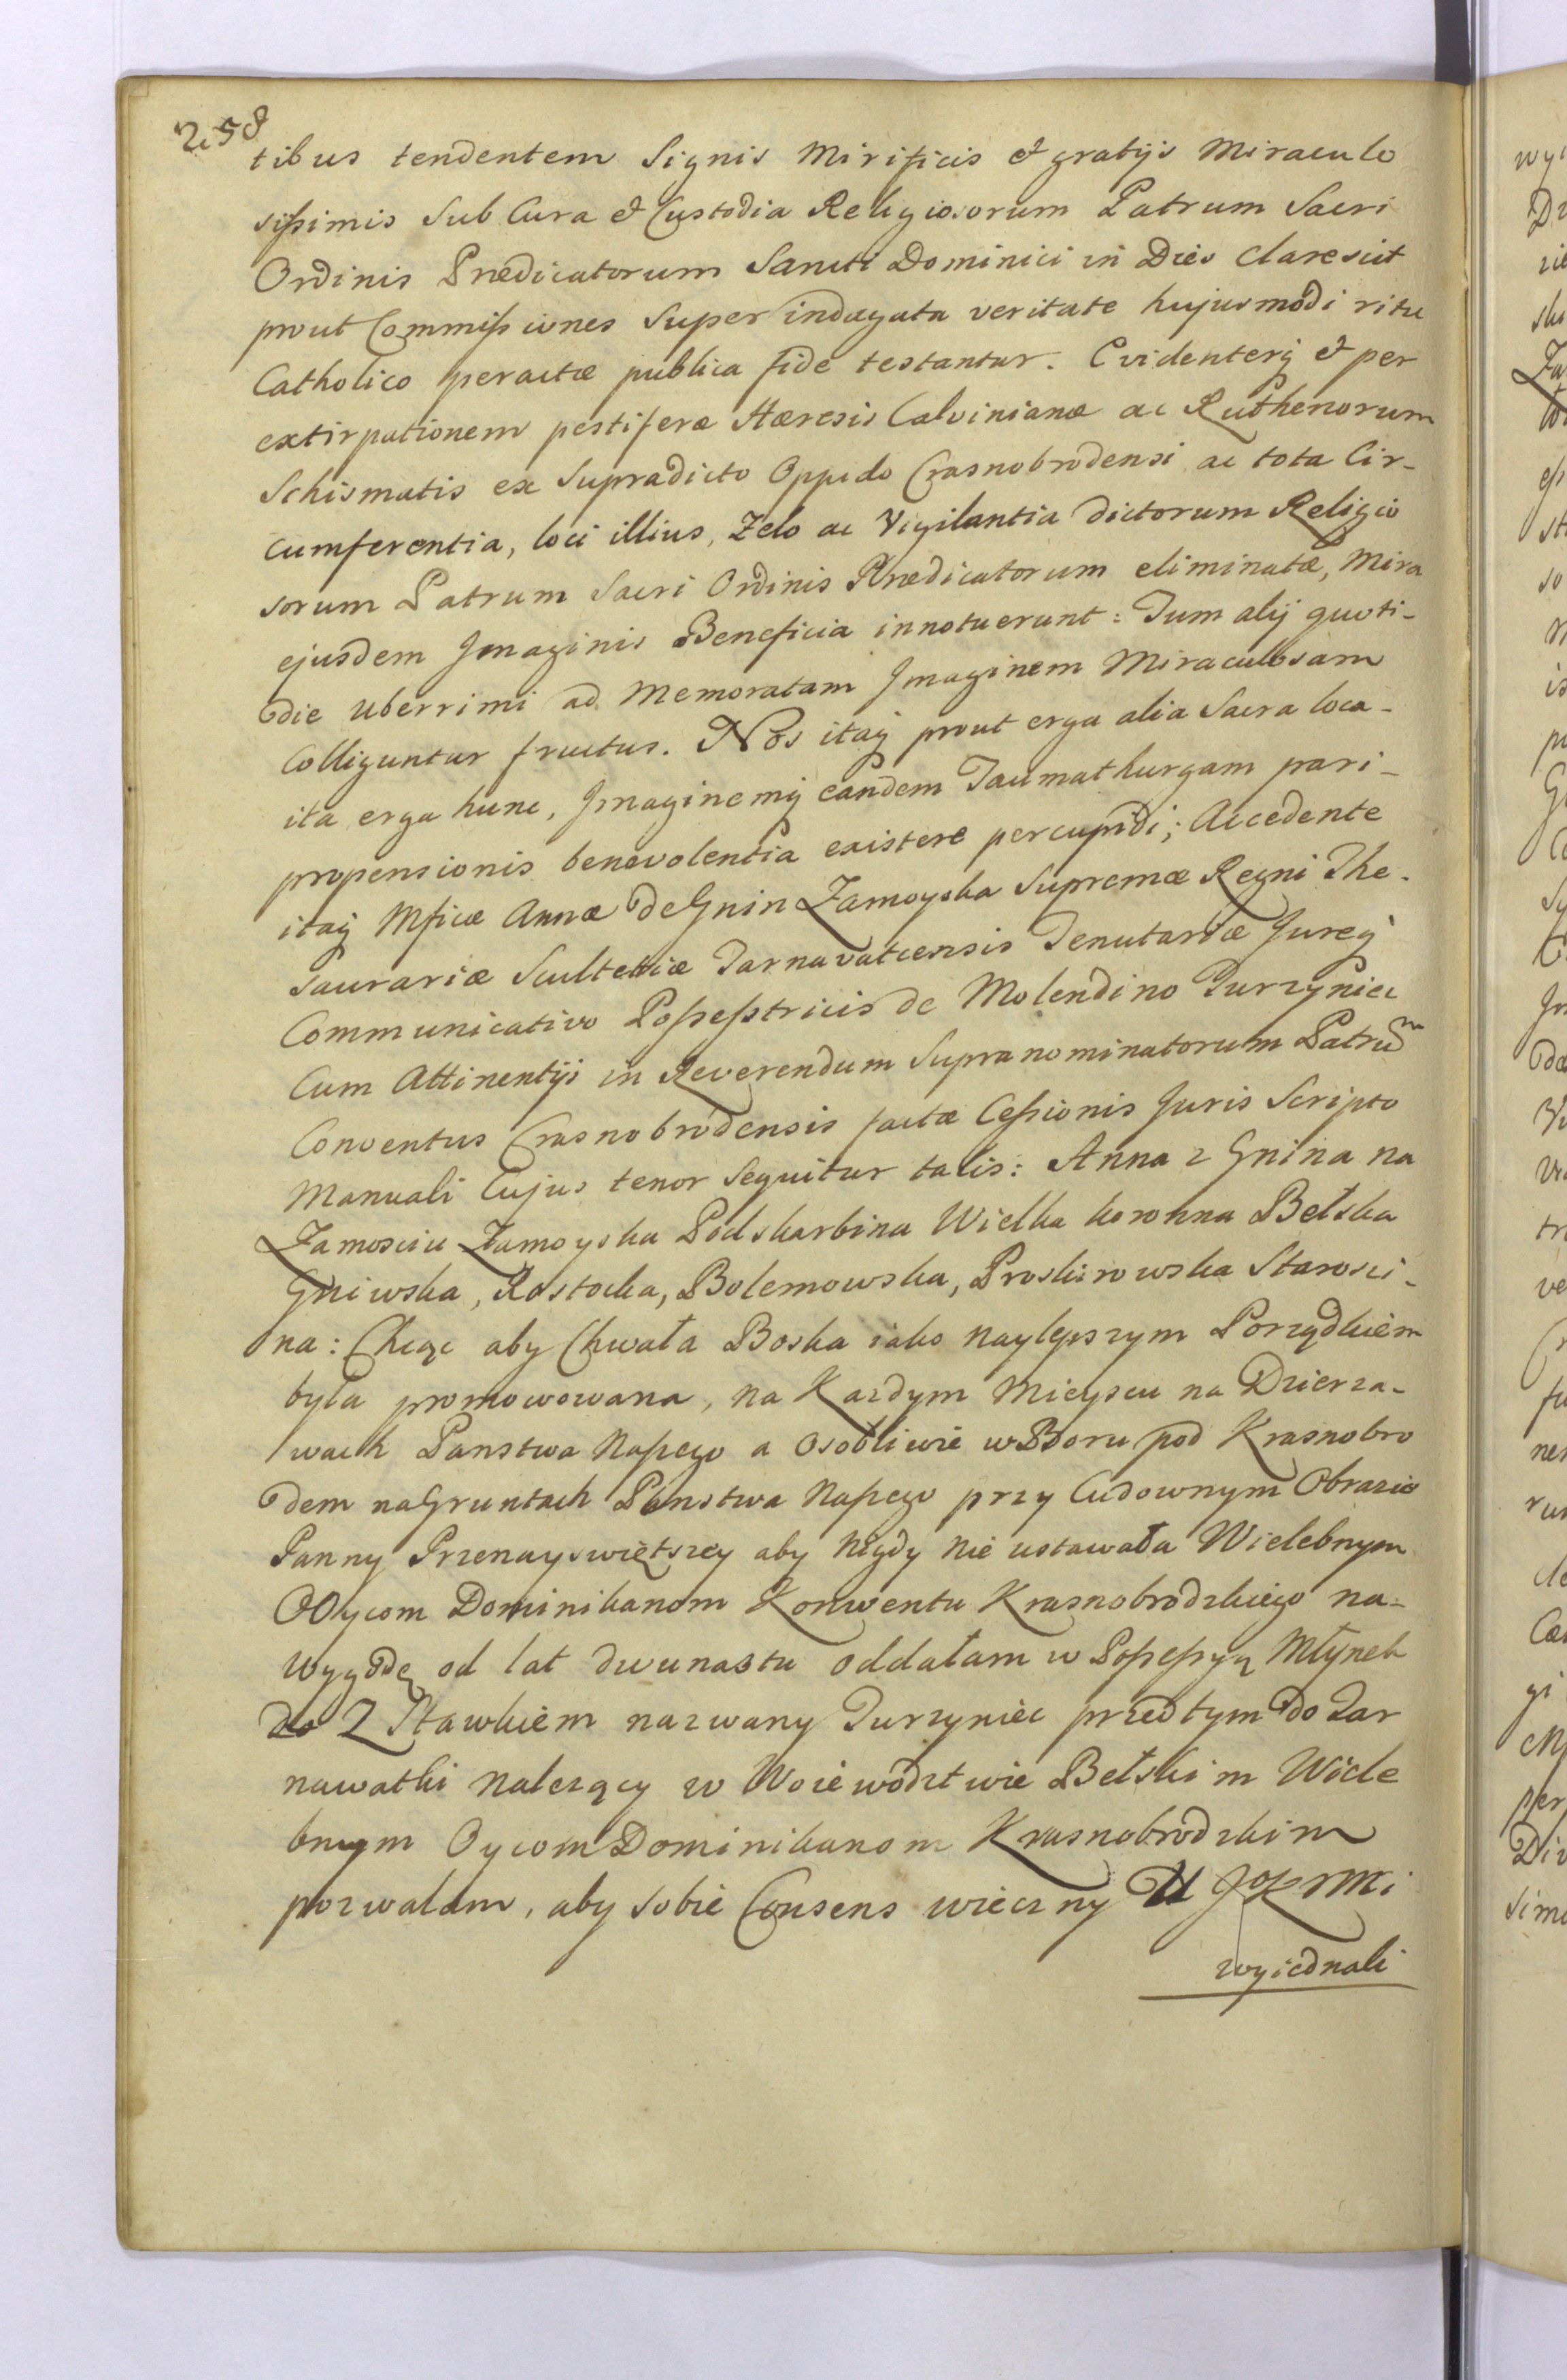 258
tibus tendentem Signis Mirificis et gratijs Miraculo
sissimis Sub Cura et Custodia Religiosorum Patrum Sacri
Ordinis Prædicatorum Sancti Dominici in Dies clarescit
prout Commissiones Super indagata veritate hujusmodi ritu
Catholico peractæ publica fide testantur. Evidenterq et per
extirpationem pestiferæ Hæresis Calvinianæ ac Ruthenorum
Schismatis ex Supradicto Oppido Crasnobrodensi ac tota Cir-
cumferentia, loci illius, Zelo ac Vigilantia dictorum Religio
sorum Patrum Sacri Ordinis Prædicatorum eliminatæ, Mira
ejusdem Jmaginis Beneficia innotuerunt: Tum alij quoti-
die Uberrimi ad Memoratam Jmaginem Miraculosam
Colliguntur fructus. Nos itaq prout erga alia Sacra loca-
ita erga hunc, Jmaginemq eandem Taumathurgam pari-
propensionis benevolentia existere percupidi; Accedente
itaq Mficæ Annæ De Gnin Zamoyska Supremæ Regni The-
saurariæ Scultetiæ Tarnavatcensis Tenutariæ Jureq
Communicativo Possesstricis de Molendino Turzyniec
Cum Attinentijs in Reverendum Supranominatorum Patrum
Conventus Crasnobrodensis factæ Cessionis Juris Scripto
Manuali Cujus tenor Sequitur talis: Anna z Gnina na
Zamosciu Zamoyska Podskarbina Wielka koronna Bełska
Gniwska, Rostocka, Bolemowska, Proskirowska Starosci-
na: Chcąc aby Chwała Boska iako naylepszym Porządkiem
była promowowana, na Kazdym Mieyscu na Dzierza-
wach Panstwa Naszego a osobliwie w Boru pod Krasnobro
dem na Gruntach Panstwa Naszego przy Cudownym Obrazie
Panny Przenayswiętszey aby Nigdy Nie ustawała Wielebnym
OOycom Dominikanom Konwentu Krasnobrodzkiego na-
Wygodę od lat dwunastu oddałam w Possessyą Młynek
Z Stawkiem nazwany Turzyniec przedtym do Tar
nawatki Nalezący w Woiewodztwie Bełskim Wiele
bnym Oycom Dominikanom Krasnobrodzkim
pozwalam, aby Sobie Consens wieczny U JoKMMi
wyiednali